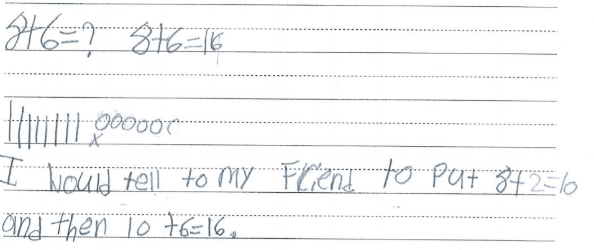 8+6=? 8+6=16
I would tell to my Friend to put 8+2=10
and then 10 +6=16.